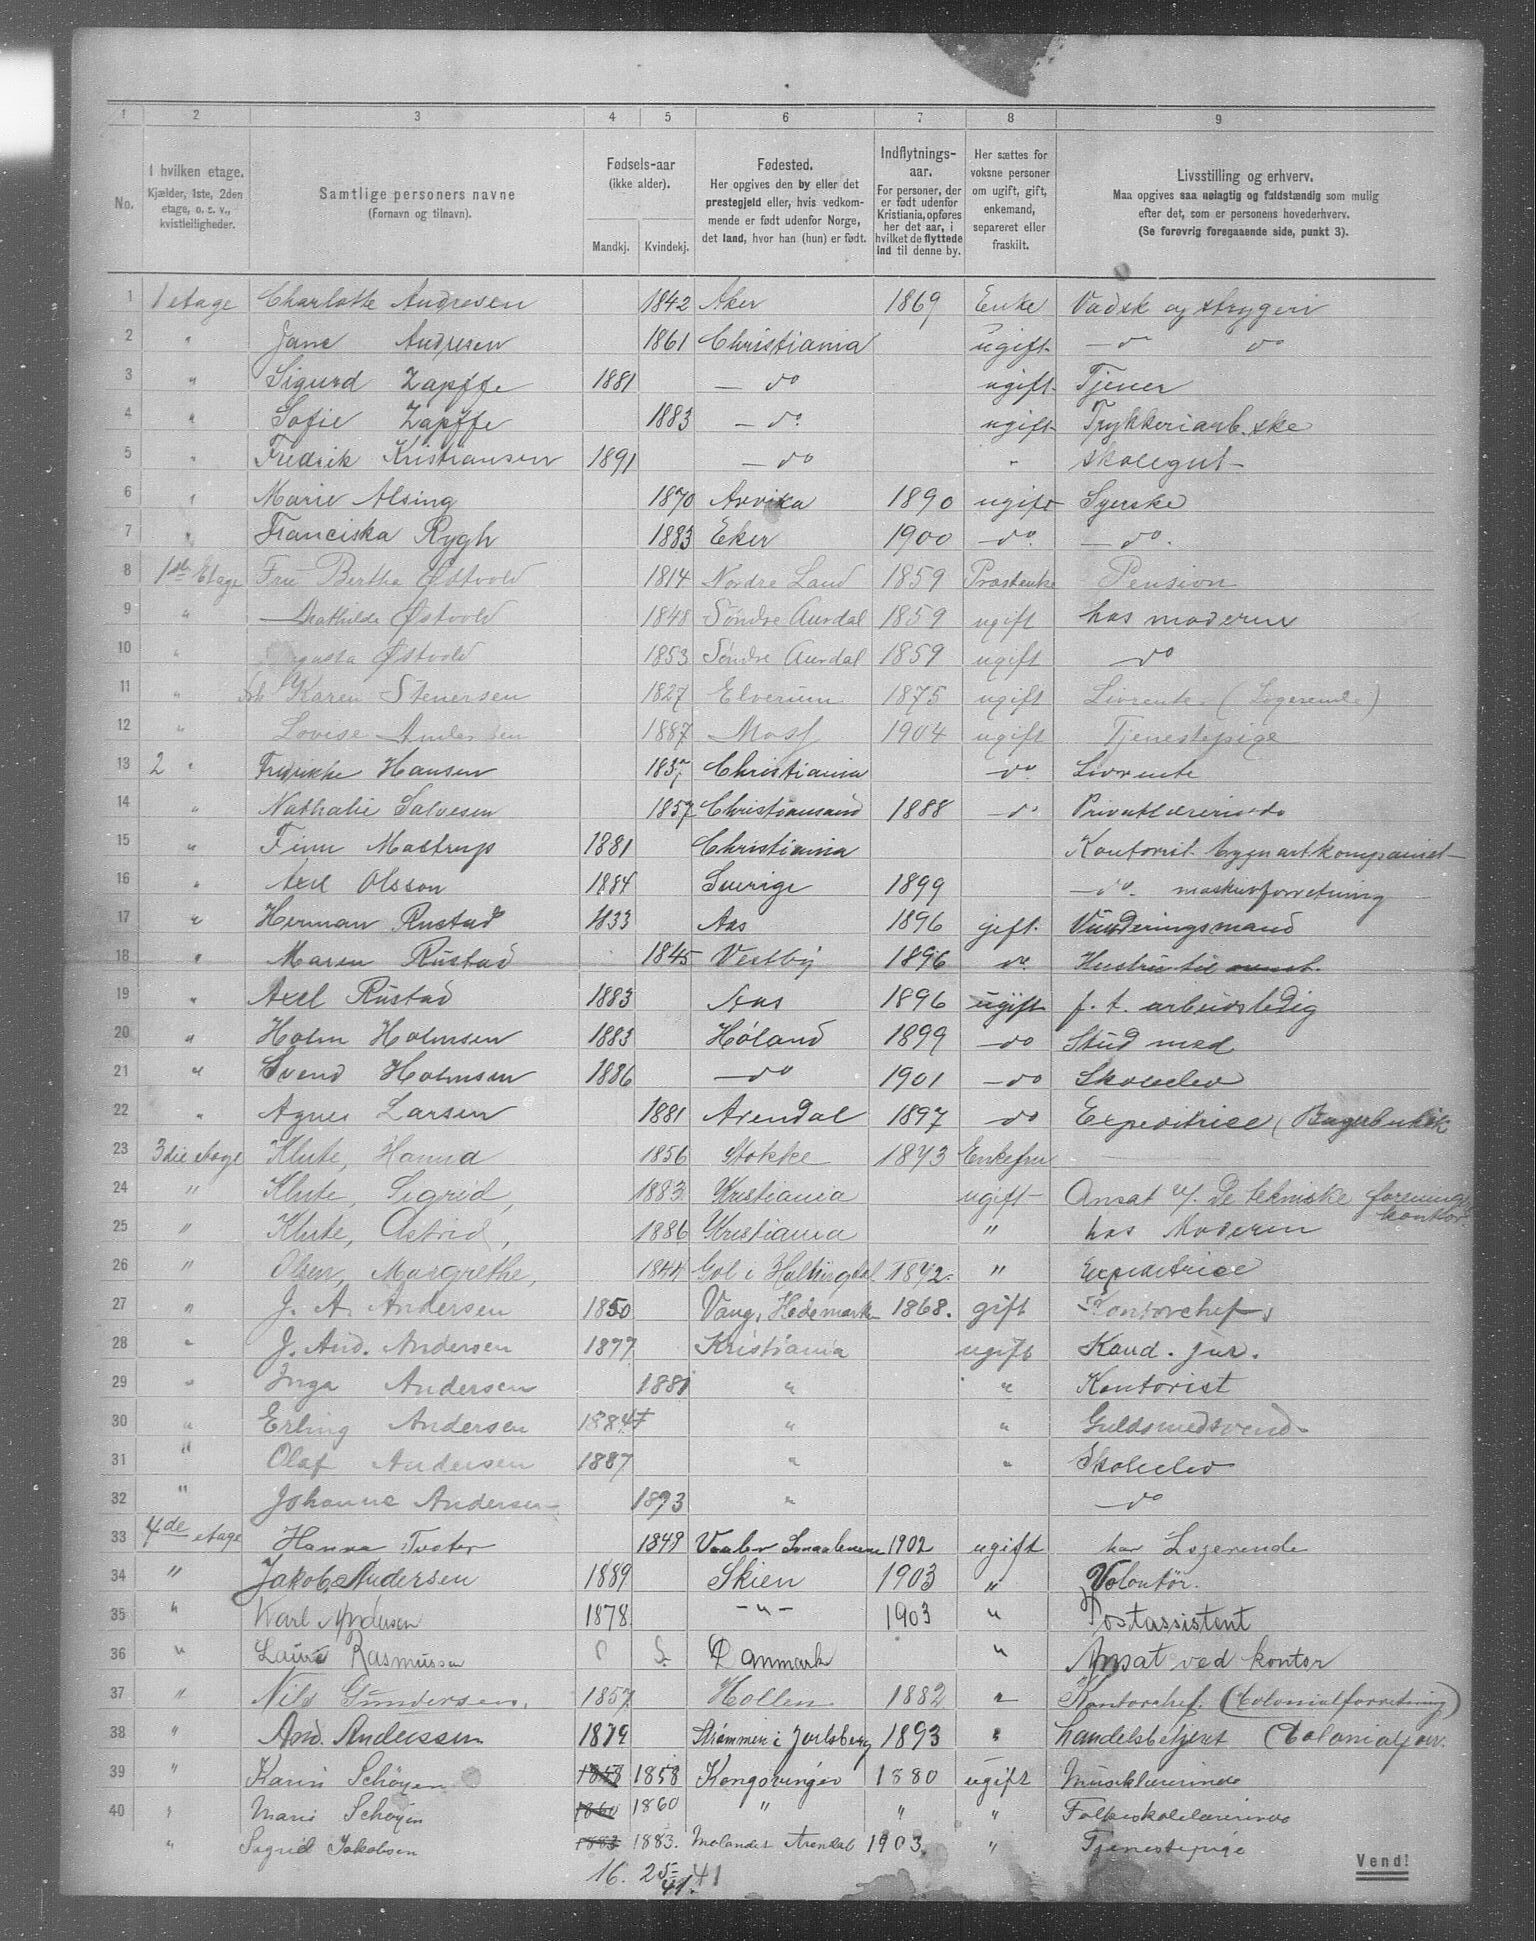 1 2 3 4 5 6 7 8 9
No.
I hvilken etage. Kjælder, 1ste, 2den etage, o. s. v., kvistleiligheder.
Samtlige personers navne (Fornavn og tilnavn).
Fødsels-aar (ikke alder). Mandkj. Kvindekj.
Fødested. Her opgives den by eller det prestegjeld eller, hvis vedkommende er født udenfor Norge, det land, hvor han (hun) er født.
Indflytnings-aar. For personer, der er født udenfor Kristiania, opføres her det aar, i hvilket de flyttede ind til denne by.
Her sættes for voksne personer om ugift, gift, enkemand, separeret eller fraskilt.
Livsstilling og erhverv. Maa opgives saa nøiagtig og fuldstændig som mulig efter det, som er personens hovederhverv. (Se forøvrig foregaaende side, punkt 3).
1 1 etage Charlotte Andresen 1842 Aker 1869 Enke Vadsk og strygeri
2 " Jane Andresen 1861 Christiania ugift — do do
3 " Sigurd Zapffe 1881 — do ugift Tjener
4 " Sofie Zapffe 1883 — do ugift Trykkeriarb.ske
5 " Fredrik Kristiansen 1891 — do " Skolegut
6 " Marie Alsing 1870 Arvika 1890 ugift Syerske
7 " Franciska Rygh 1883 Eker 1900 — do — do
8 1ste Etage Fru Bertha Østvold 1814 Nordre Land 1859 Prostenke Pension
9 " Mathilde Østvold 1848 Søndre Aurdal 1859 ugift hos moderen
10 " Østvold 1853 Søndre Aurdal 1859 ugift do
11 " Karen Stenersen 1827 Elverum 1875 ugift Livrente (Logerende)
12 " Lovise Andersen 1887 Moss 1904 ugift Tjenestepige
13 2 " Fredrikke Hansen 1837 Christiania do Livrente
14 " Nathalie Salvesen 1857 Christiansand 1888 — do Privatlærerinde
15 " Finn Mostrup 1881 Christiania Kontorist
16 " Axel Olsson 1884 Sverige 1899 — do. maskinforretning
17 " Herman Rustad 1833 Aas 1896 gift Vurderingsmand
18 " Maren Rustad 1845 Vestby 1896 do Hustru til
19 " Axel Rustad 1883 Aas 1896 ugift f. t. arbeidsledig
20 " Holm Holmsen 1883 Høland 1899 — do Stud med
21 " Svend Holmsen 1886 — do 1901 — do Skoleelev
22 " Agnes Larsen 1881 Arendal 1897 do Expeditrice (Bagerbutik
23 3die etage Klute, Hanna 1856 Stokke 1873 Enkefru
24 " Klute, Sigrid, 1883 Kristiania ugift Ansat v/. De tekniske forenings kontor.
25 " Klute, Astrid, 1886 Kristiania " hos Moderen
26 " Olsen, Margrethe, 1844 Gol i Hallingdal 1872. " Expeditrice
27 " J. A. Andersen 1850 Vang, Hedemarken 1868. gift Kontorchef
28 " J. And. Andersen 1877 Kristiania ugift Kand. jur.
29 " Inga Andersen 1881 " " Kontorist
30 " Erling Andersen 1884 " " Guldsmedsvend
31 " Olaf Andersen 1887 " " Skoleelev
32 " Johanne Andersen 1893 " — do
33 4de etage Hanna Tveter 1849 Vaaler Smaalenene 1902 ugift har Logerende
34 " Jakob Andersen 1889 Skien 1903 " Volontør.
35 " Karl Andersen 1878 - " - 1903 " Postassistent
36 " Rasmussen Danmark " Ansat ved kontor
37 " Nils Gundersen. 1857 Hollen 1882 " Kontorchef. (Colonialforretning)
38 " And. Anderssen 1879 Strømmen i Jarlsberg 1893 " handelsbetjent (Colonialforr.
39 " Karin Schøyen 1858 1858 Kongsvinger 1880 ugift Musiklærerinde
40 " Marie Schøyen 1860 1860 " " " Folkeskolelærerinde
" Sigrid Jakobsen 1883 1883. Molandet Arendal 1903. " Tjenestepige
16. 25 = 41
41.
Vend!